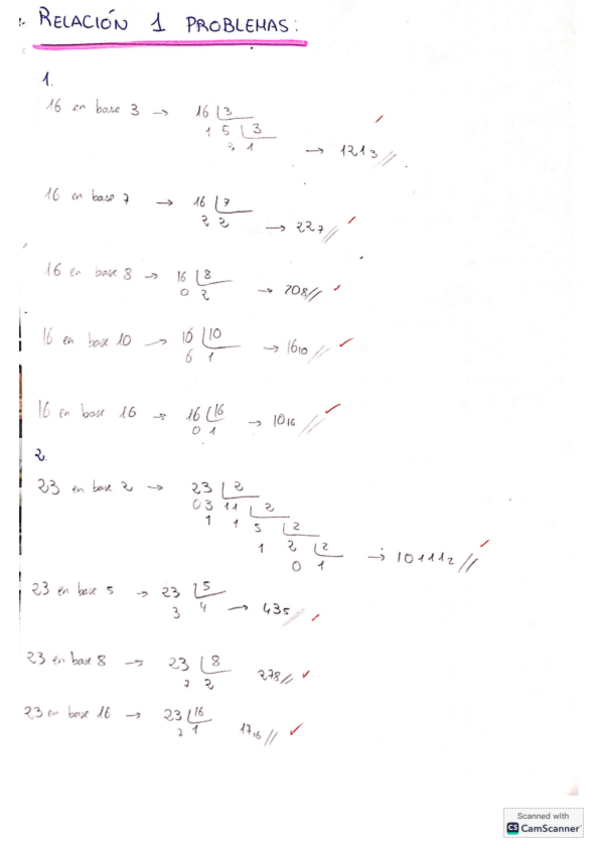 RELACIÓN 1 PROBLEMAS:
1.
16 en base 3 → 16 3
1 5 3
2 1 → 121₃//
16 en base 7 → 16 7
2 2 → 22₇//
16 en base 8 → 16 8
0 2 → 20₈//
16 en base 10 → 16 10
6 1 → 16₁₀//
16 en base 16 → 16 16
0 1 → 10₁₆//
2.
23 en base 2 → 23 2
03 11 2
1 1 5 2
1 2 2
0 1 → 10111₂//
23 en base 5 → 23 5
3 4 → 43₅//
23 en base 8 → 23 8
7 2 27₈//
23 en base 16 → 23 16
7 1 17₁₆//
Scanned with
CS CamScanner